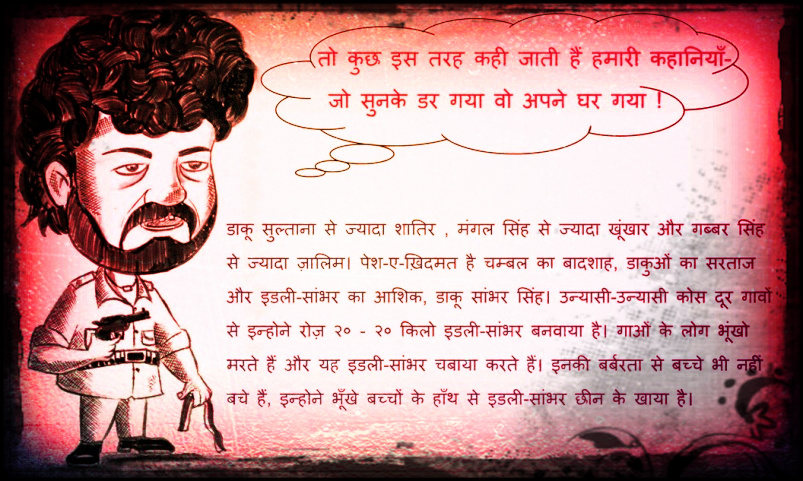 तो कुछ इस तरह कही जाती हैं हमारी कहानियाँ-
जो सुनके डर गया वो अपने घर गया !
डाकू सुल्ताना से ज्यादा शातिर , मंगल सिंह से ज्यादा खूंखार और गब्बर सिंह
से ज्यादा ज़ालिम। पेश-ए-ख़िदमत है चम्बल का बादशाह, डाकुओं का सरताज
और इडली-सांभर का आशिक, डाकू सांभर सिंह। उन्यासी-उन्यासी कोस दूर गावों
से इन्होने रोज़ २० - २० किलो इडली-सांभर बनवाया है। गाओं के लोग भूंखो
मरते हैं और यह इडली-सांभर चबाया करते हैं। इनकी बर्बरता से बच्चे भी नहीं
बचे हैं, इन्होने भूँखे बच्चों के हाँथ से इडली-सांभर छीन के खाया है।